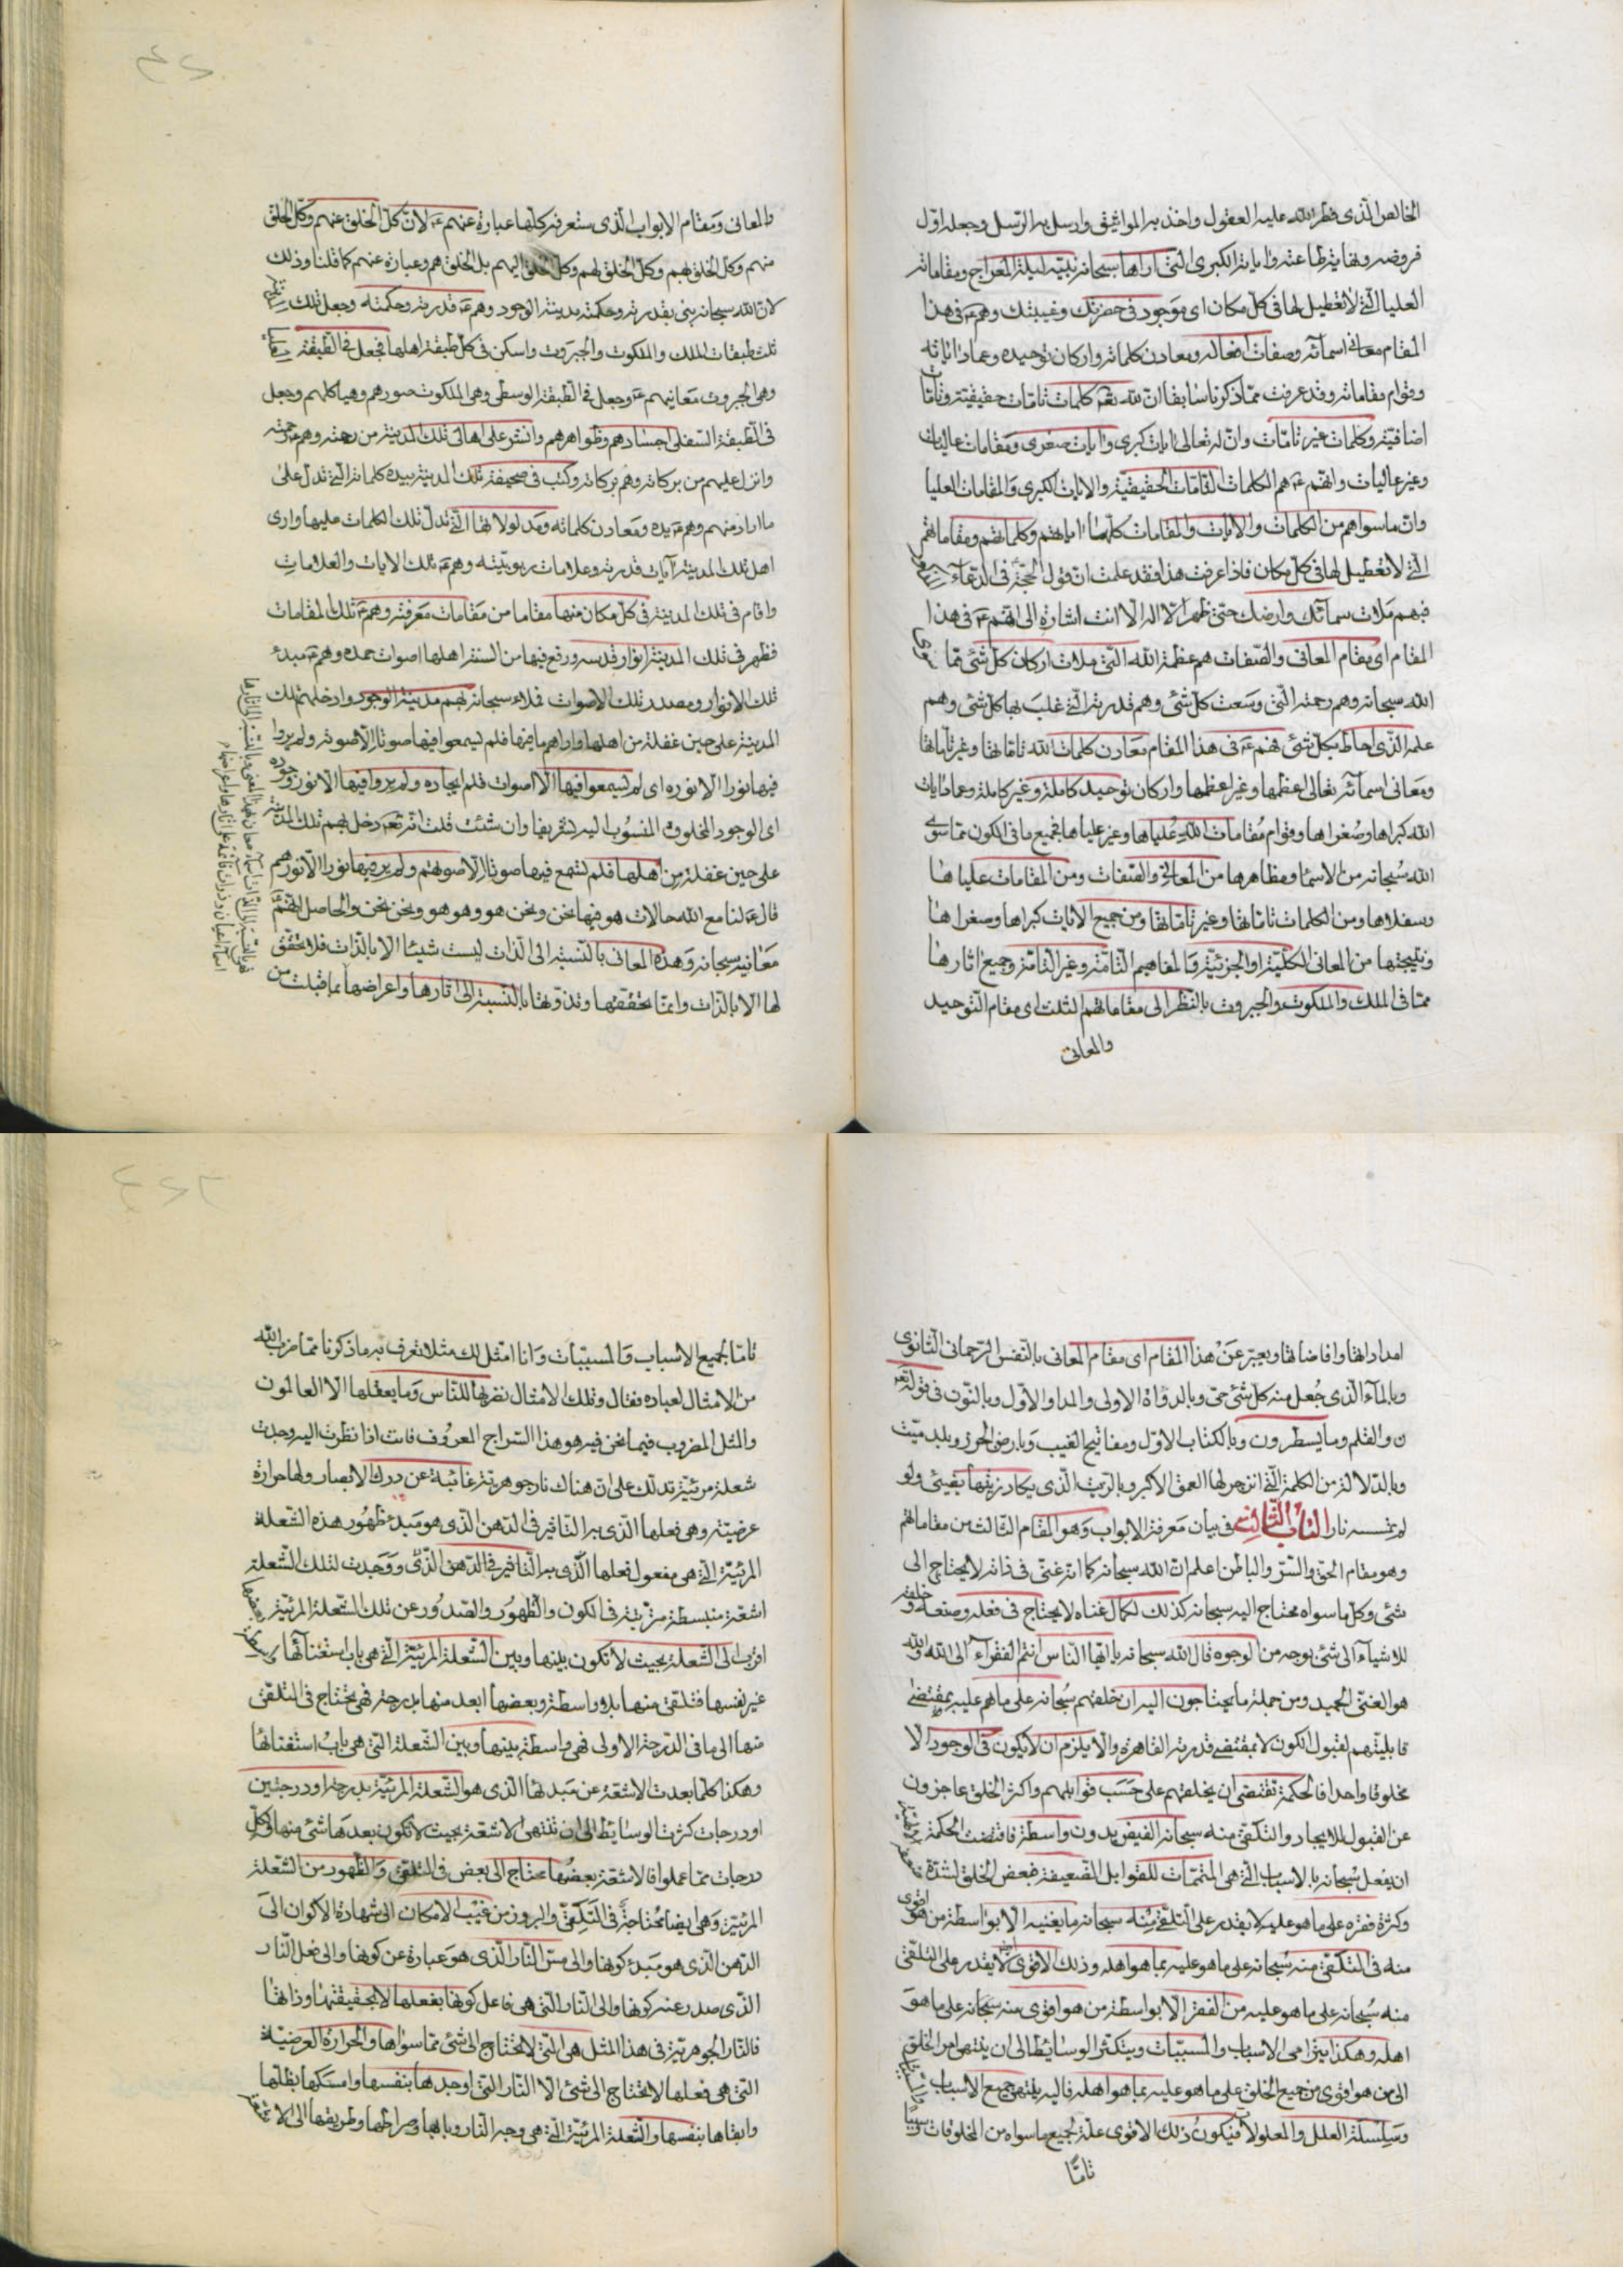 الخالص الذى فطر الله عليه العقول واخذ به المواثيق وارسل به الرسل وجعله اول
فروضه ونهاية طاعته وآياته الكبرى التى اراها سبحانه نبيه ليلة المعراج ومقاماته
العليا التى لا تعطيل لها فى كل مكان اى موجود فى حضرتك وغيبتك وهم ع فى هذا
المقام معانى اسمائه وصفات افعاله ومعادن كلماته واركان توحيده وعماد اياته
وقوام مقاماته وقد عرفت مما ذكرنا سابقا ان لله تعه كلمات تامات حقيقية وتامات
اضافية وكلمات غير تامات وان له تعالى ايات كبرى وايات صغرى ومقامات عاليات
وغير عاليات وانهم ع هم الكلمات التامات الحقيقية والايات الكبرى والمقامات العليا
وان ما سواهم من الكلمات والايات والمقامات كلها اياتهم وكلماتهم ومقاماتهم
التى لا تعطيل لها فى كل مكان فاذا عرفت هذا فقد علمت ان قول الحجة فى الدعاء
فبهم ملأت سمائك وارضك حتى ظهر ان لا اله الا انت اشارة الى انهم ع فى هذا
المقام اى مقام المعانى والصفات هم عظمة الله التى ملات اركان كل شئ مما
الله سبحانه وهم رحمته التى وسعت كل شئ وهم قدرته التى غلب بها كل شئ وهم
علمه الذى احاط بكل شئ فهم ع فى هذا المقام معادن كلمات الله تاماتها وغير تاماتها
ومعانى اسمائه تعالى اعظمها وغير اعظمها واركان توحيد كاملة وغير كاملة وعماد ايات
الله كبراها وصغراها وقوام مقامات الله علياها وغير علياها فجميع ما فى الكون مما سوى
الله سبحانه من الاسماء ومظاهرها من المعانى والصفات ومن المقامات علياها
وسفلاها ومن الكلمات تاماتها وغير تاماتها ومن جميع الايات كبراها وصغراها
ونتيجتها من المعانى الكلية او الجزئية والمفاهيم التامة وغير التامة وجميع اثارها
مما فى الملك والملكوت والجبروت بالنظر الى مقاماتهم الثلث اى مقام التوحيد
والمعانى
والمعانى ومقام الابواب الذى ستعرفه كلها عبارة عنهم ع لان كل الخلق عنهم وكل الخلق
منهم وكل الخلق بهم وكل الخلق لهم وكل الخلق اليهم بل الخلق هم وعبارة عنهم كما قلنا وذلك
لان الله سبحانه بنى بقدرته وحكمته مدينة الوجود وهم ع قدرته وحكمته وجعل تلك
ثلث طبقات الملك والملكوت والجبروت واسكن فى كل طبقة اهلها فجعل فى الطبقة
وهى الجبروت معانيهم ع وجعل فى الطبقة الوسطى وهى الملكوت صورهم وهياكلهم وجعل
فى الطبقة السفلى اجسادهم وظواهرهم وانشر على اهالى تلك المدينة من رحمته وهم ع رحمته
وانزل عليهم من بركاته وهم بركاته وكتب فى صحيفة تلك المدينة بيده كلماته التى تدل على
ما اراد منهم وهم ع يده ومعادن كلماته ومدلولاتها التى تدل تلك الكلمات عليها وارى
اهل تلك المدينة آيات قدرته وعلامات ربوبيته وهم ع تلك الايات والعلامات
واقام فى تلك المدينة فى كل مكان منها مقاما من مقامات معرفته وهم ع تلك المقامات
فظهر فى تلك المدينة انوار قدسه ورفع فيها من السنة اهلها اصوات حمده وهم ع مبدء
تلك الانوار ومصدر تلك الاصوات فملاء سبحانه بهم مدينة الوجود وادخلهم تلك
المدينة على حين غفلة من اهلها واراهم ما فيها فلم يسمعوا فيها صوتا الا صوته ولم يروا
فيها نورا الا نوره اى لم يسمعوا فيها الا اصوات قلم ايجاده ولم يروا فيها الا نور وجوده
اى الوجود المخلوق المنسوب اليه تشريفا وان شئت قلت انه تعه دخل بهم تلك المدينة
على حين غفلة من اهلها فلم تسمع فيها صوتا الا صوتهم ولم ير فيها نورا الا نورهم
قال ع لنا مع الله حالات هو فيها نحن ونحن هو وهو هو ونحن نحن والحاصل انهم ع
معانيه سبحانه وهذه المعانى بالنسبة الى الذات ليست شيئا الا بالذات فلا تحقق
لها الا بالذات وانما تحققها وتذوتها بالنسبة الى اثارها واعراضها بما قبلت من
امداداتها وافاضاتها ويعبر عن هذا المقام اى مقام المعانى بالنفس الرحمانى الثانوى
وبالماء الذى جعل منه كل شئ حى وبالدواة الاولى والمداد الاول وبالنون فى قوله تعه
ن والقلم وما يسطرون وبالكتاب الاول ومفاتيح الغيب وبارض الجرز وبلد ميت
وبالدلالة من الكلمة التى انزجر لها العمق الاكبر وبالزيت الذى يكاد زيتها يضيئ ولو
لم تمسسه نار الباب الثالث فى بيان معرفة الابواب وهو المقام الثالث من مقاماتهم
وهو مقام الحق والستر والباطن اعلم ان الله سبحانه كما انه غنى فى ذاته لا يحتاج الى
شئ وكل ما سواه محتاج اليه سبحانه كذلك لكمال غناه لا يحتاج فى فعله وصنعه وخلقه
للاشياء الى شئ بوجه من الوجوه قال الله سبحانه يا ايها الناس انتم الفقراء الى الله والله
هو الغنى الحميد ومن جملة ما يحتاجون اليه ان خلقهم سبحانه على ما هم عليه بمقتضى
قابليتهم لقبول الكون لا بمقتضى قدرته القاهرة والا يلزم ان لا يكون فى الوجود الا
مخلوقا واحدا فالحكمة تقتضى ان يخلقهم على حسب قوابلهم واكثر الخلق عاجزون
عن القبول للايجاد والتلقى منه سبحانه الفيض بدون واسطة فاقتضت الحكمة
ان يفعل سبحانه بالاسباب التى هى المتممات للقوابل الضعيفة فبعض الخلق لشدة
وكثرة فقره على ما هو عليه لا يقدر على التلقى منه سبحانه ما يغنيه الا بواسطة من هو اقوى
منه فى التلقى منه سبحانه على ما هو عليه بما هو اهله وذلك الاقوى لا يقدر على التلقى
منه سبحانه على ما هو عليه من الفقر الا بواسطة من هو اقوى منه سبحانه على ما هو
اهله وهكذا يترامى الاسباب والمسببات ويتكثر الوسائط الى ان ينتهى امر الخلق
الى من هو اقوى من جميع الخلق على ما هو عليه بما هو اهله فاليه ينتهى جميع الاسباب
وسلسلة العلل والمعلولات فيكون ذلك الاقوى علة لجميع ما سواه من المخلوقات وسببا
تاما
تاما لجميع الاسباب والمسببات وانا امثل لك مثلا تعرف به ما ذكرنا مما ضرب الله
من الامثال لعباده فقال وتلك الامثال نضربها للناس وما يعقلها الا العالمون
والمثل المضروب فيما نحن فيه هو هذا السراج المعروف فانت اذا نظرت اليه وجدت
شعلة مرئية تدلك على ان هناك نار جوهرية غائبة عن درك الابصار ولها حرارة
عرضية وهى فعلها الذى به التاثير فى الدهن الذى هو مبدء ظهور هذه الشعلة
المرئية التى هى مفعول فعلها الذى به التاثير فى الدهن الذى ووجدت لتلك الشعلة
اشعة منبسطة مترتبة فى الكون والظهور والصدور عن تلك الشعلة المرئية بعضها
اقرب الى الشعلة بحيث لا تكون بينها وبين الشعلة المرئية التى هى باب استغنائها
غير نفسها فتلقى منها بلا واسطة وبعضها ابعد منها بدرجة فهى تحتاج فى التلقى
منها الى ما فى الدرجة الاولى فهى واسطة بينها وبين الشعلة التى هى باب استغنائها
وهكذا كلما بعدت الاشعة عن مبدئها الذى هو الشعلة المرئية بدرجة او درجتين
او درجات كثرت الوسائط الى ان تنتهى الاشعة بحيث لا تكون بعدها شئ منها ولكل
درجات مما عملوا فالاشعة بعضها محتاج الى بعض فى التلقى والظهور من الشعلة
المرئية وهى ايضا محتاجة فى التلقى والبروز من غيب الامكان الى شهادة الاكوان الى
الدهن الذى هو مبدء كونها والى مس النار الذى هو عبارة عن كونها والى فعل النار
الذى صدر عنه كونها والى النار التى هى فاعل كونها بفعلها لا بحقيقتها وذاتها
فالنار الجوهرية فى هذا المثل هى التى لا تحتاج الى شئ مما سواها والحرارة العرضية
التى هى فعلها لا تحتاج الى شئ الا النار التى اوجدها بنفسها وامسكها بظلها
وابقاها بنفسها والشعلة المرئية التى هى وجه النار وبابها وصراطها وطريقها الى الاشعة